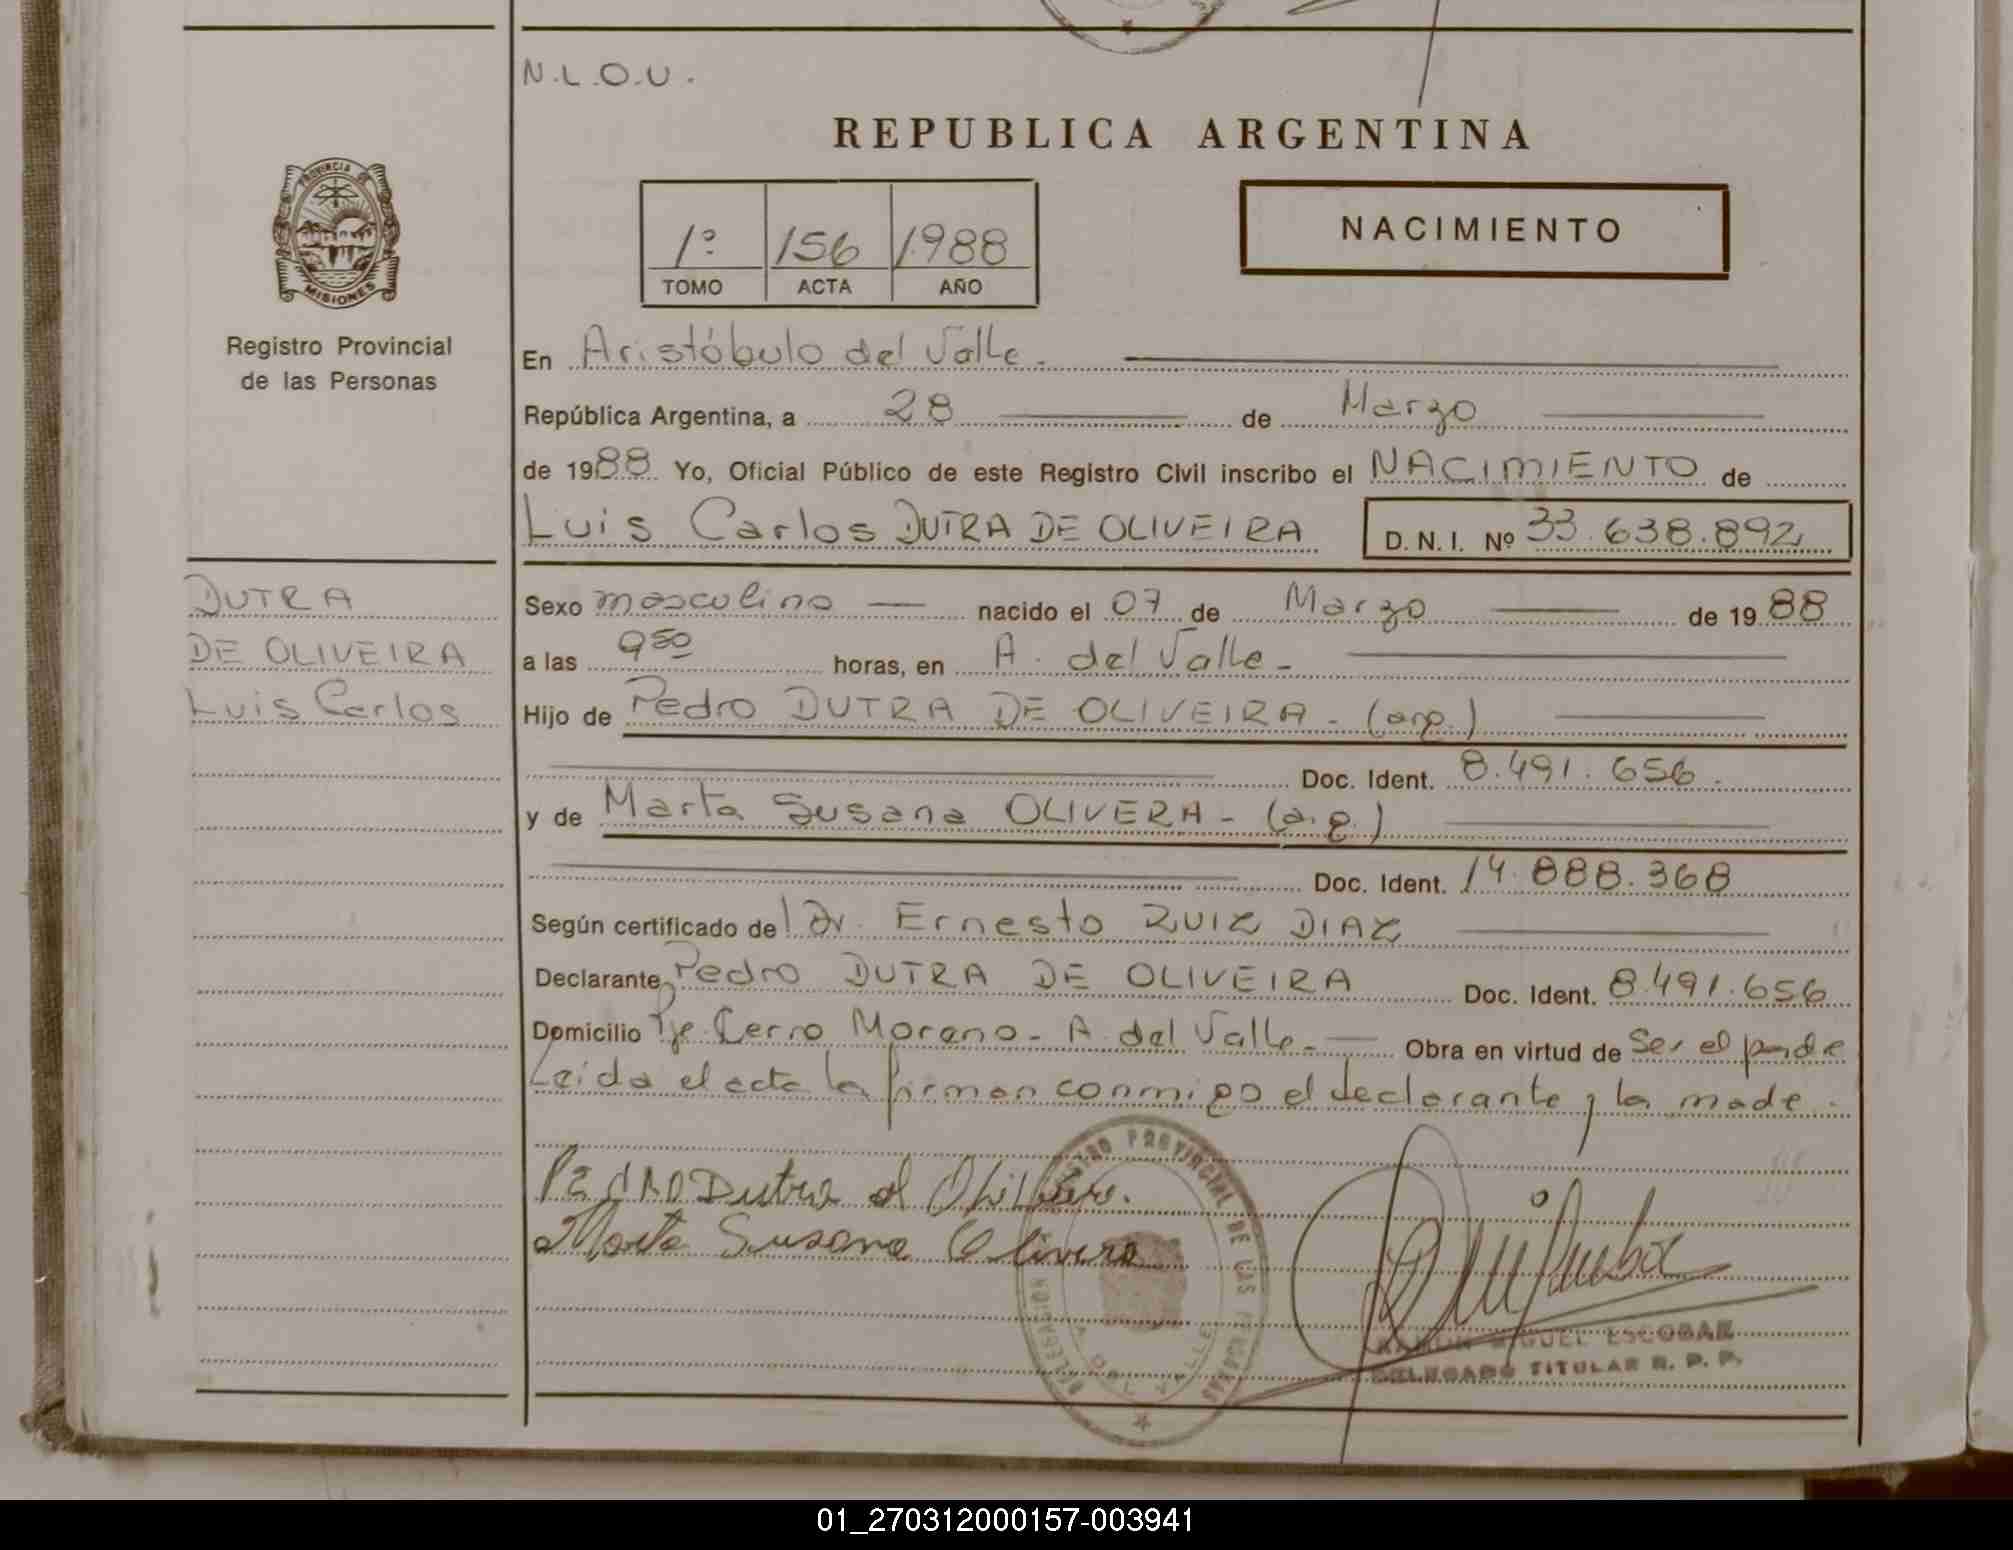 N.L.O.U.
REPUBLICA ARGENTINA
PROVINCIA DE
MISIONES
Registro Provincial
de las Personas
1º 156 1988
TOMO ACTA AÑO
NACIMIENTO
En Aristóbulo del Valle.
República Argentina, a 28 de Marzo
de 1988 Yo, Oficial Público de este Registro Civil inscribo el NACIMIENTO de
Luis Carlos DUTRA DE OLIVEIRA D.N.I. Nº 33.638.892
DUTRA
DE OLIVEIRA
Luis Carlos
Sexo masculino nacido el 07 de Marzo de 1988
a las 9 50 horas, en A. del Valle
Hijo de Pedro DUTRA DE OLIVEIRA - (arg.)
Doc. Ident. 8.491.656.
y de Marta Susana OLIVERA - (arg.)
Doc. Ident. 14.888.368
Según certificado del Dr. Ernesto RUIZ DIAZ
Declarante Pedro DUTRA DE OLIVEIRA Doc. Ident. 8.491.656
Domicilio Pje. Cerro Moreno - A. del Valle. Obra en virtud de Ser el padre
Leida el acta la firman conmigo el declarante y la madre.
Pedro Dutra
Marta Susana Olivera
REGISTRO PROVINCIAL DE LAS PERSONAS
DELEGACION
A. DEL VALLE
RAMON MIGUEL ESCOBAR
DELEGADO TITULAR R. P. P.
01_270312000157-003941